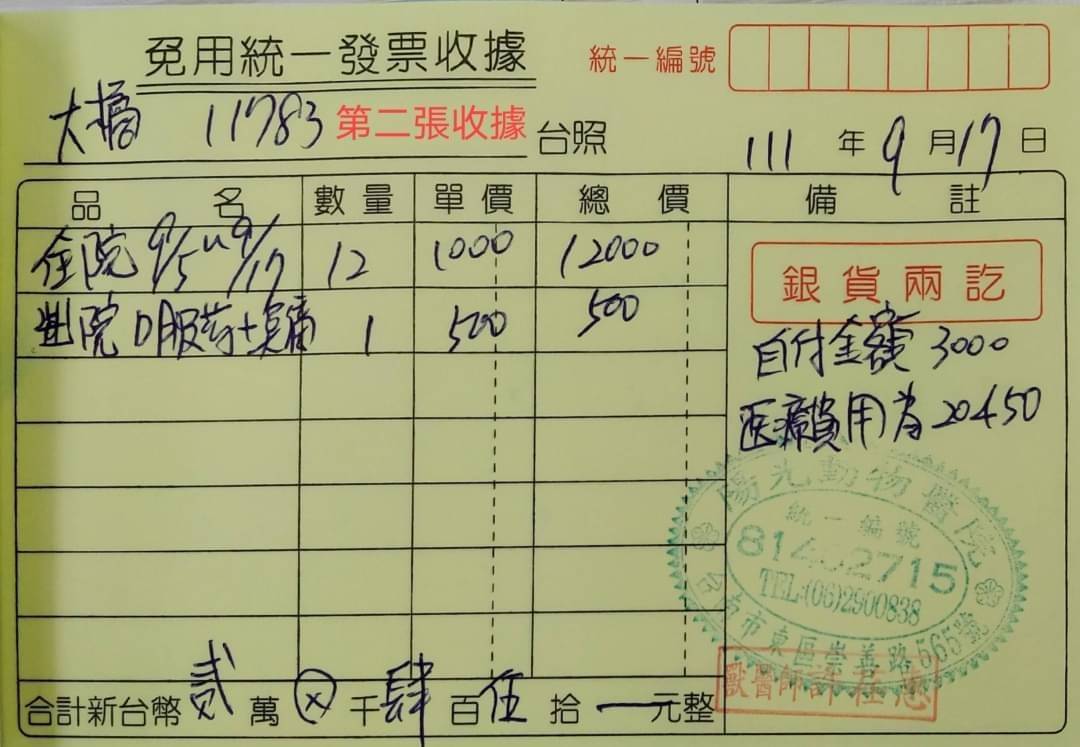 免用統一發票收據
統一編號
大橘 11783 第二張收據 台照
111 年 9 月 17 日
品名 數量 單價 總價 備註
住院 9/5~9/17 12 1000 12000
出院口服藥+ 1 500 500
銀貨兩訖
自付金額 3000
医療費用 20450
陽光動物醫院
統一編號
2715
TEL:(06)2900838
台南市東區崇善路565號
獸醫師許
合計新台幣 貳 萬 ⊗ 千 肆 百 伍 拾 — 元整